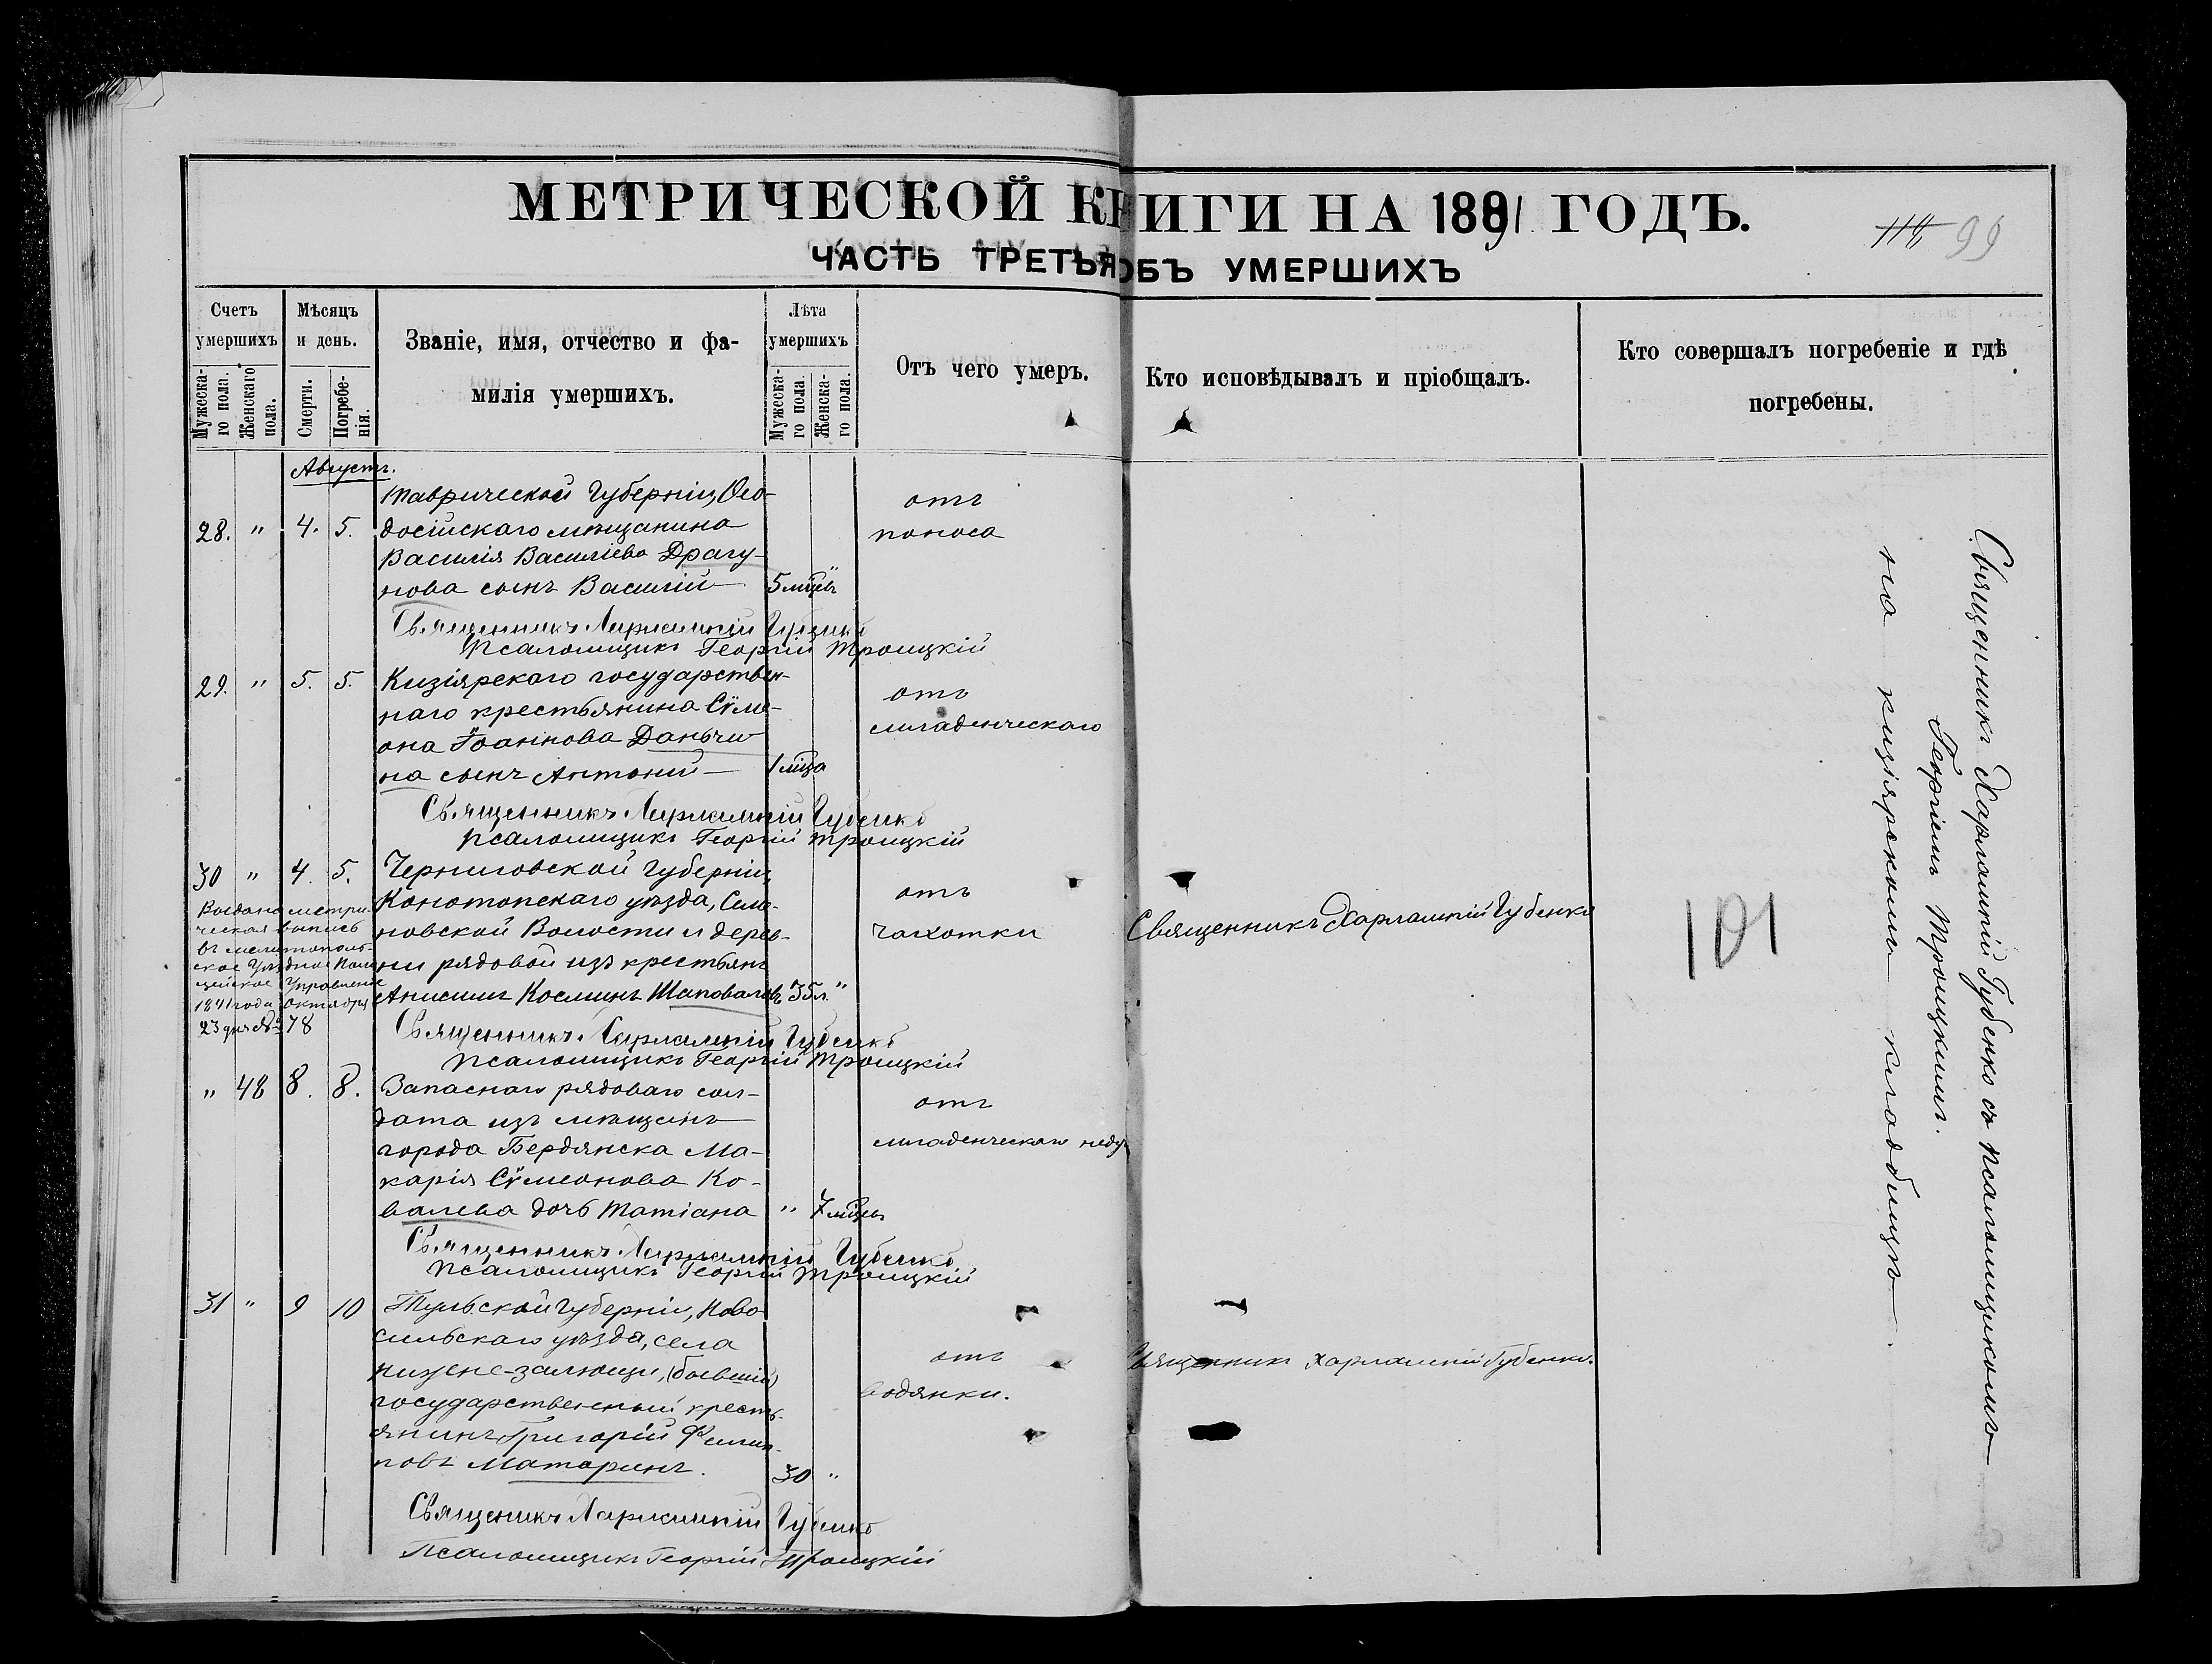 МЕТРИЧЕСКОЙ КНИГИ НА 1891 ГОДЪ.
99
ЧАСТЬ ТРЕТЬЯ ОБЪ УМЕРШИХЪ
Счетъ умершихъ
Мужеска-го пола.
Женскаго пола.
Мѣсяцъ и день.
Смерти.
Погребе-нія.
Званіе, имя, отчество и фа-
милія умершихъ.
Лѣта умершихъ
Мужеска-го пола.
Женска-го пола.
Отъ чего умеръ.
Кто исповѣдывалъ и пріобщалъ.
Кто совершалъ погребеніе и гдѣ
погребены.
Августъ.
Таврической Губерніи, Ѳео-
28. " 4. 5. досійскаго мѣщанина
Василія Василіева Драгу-
нова сынъ Василій 5 мцѣв
отъ
поноса
Священникъ Харлампій Губенко
Псаломщикъ Георгій Троицкій
29. " 5. 5. Кизіярскаго государствен-
наго крестьянина Сѵме-
она Іоаннова Даньчи-
на сынъ Антоній 1 мца
отъ
младенческаго
Священникъ Харлампій Губенко
Псаломщикъ Георгій Троицкій
30 " 4. 5. Черниговской Губерніи,
Конотопскаго уѣзда, Семе-
новской Волости и дерев-
ни рядовой изъ крестьянъ
Анисимъ Косминъ Шаповаловъ 35 л. "
отъ
чахотки
Священникъ Харлампій Губенко
Выдана метри-
ческая выпись
въ мелитополь-
ское Уѣздное Поли-
цейское Управленіе
1891 года Октября
23 дня № 78
Священникъ Харлампій Губенко
Псаломщикъ Георгій Троицкій
" 48 8. 8. Запаснаго рядоваго сол-
дата изъ мѣщанъ
города Бердянска Ма-
карія Сѵмеонова Ко-
валева дочь Татіана " 7 мцѣв
отъ
младенческаго
Священникъ Харлампій Губенко
Псаломщикъ Георгій Троицкій
31 " 9 10 Тульской Губерніи, Ново
сильскаго уѣзда, села
(бывшій)
государственный кресть-
янинъ Григорій Филип-
повъ Матаринъ. 30 "
отъ
водянки.
Священникъ Харлампій Губенко.
Священникъ Харлампій Губенко
Псаломщикъ Георгій Троицкій
101
Священникъ Харлампій Губенко съ псаломщикомъ
Георгіемъ Троицкимъ.
на кизіярскомъ кладбищѣ.